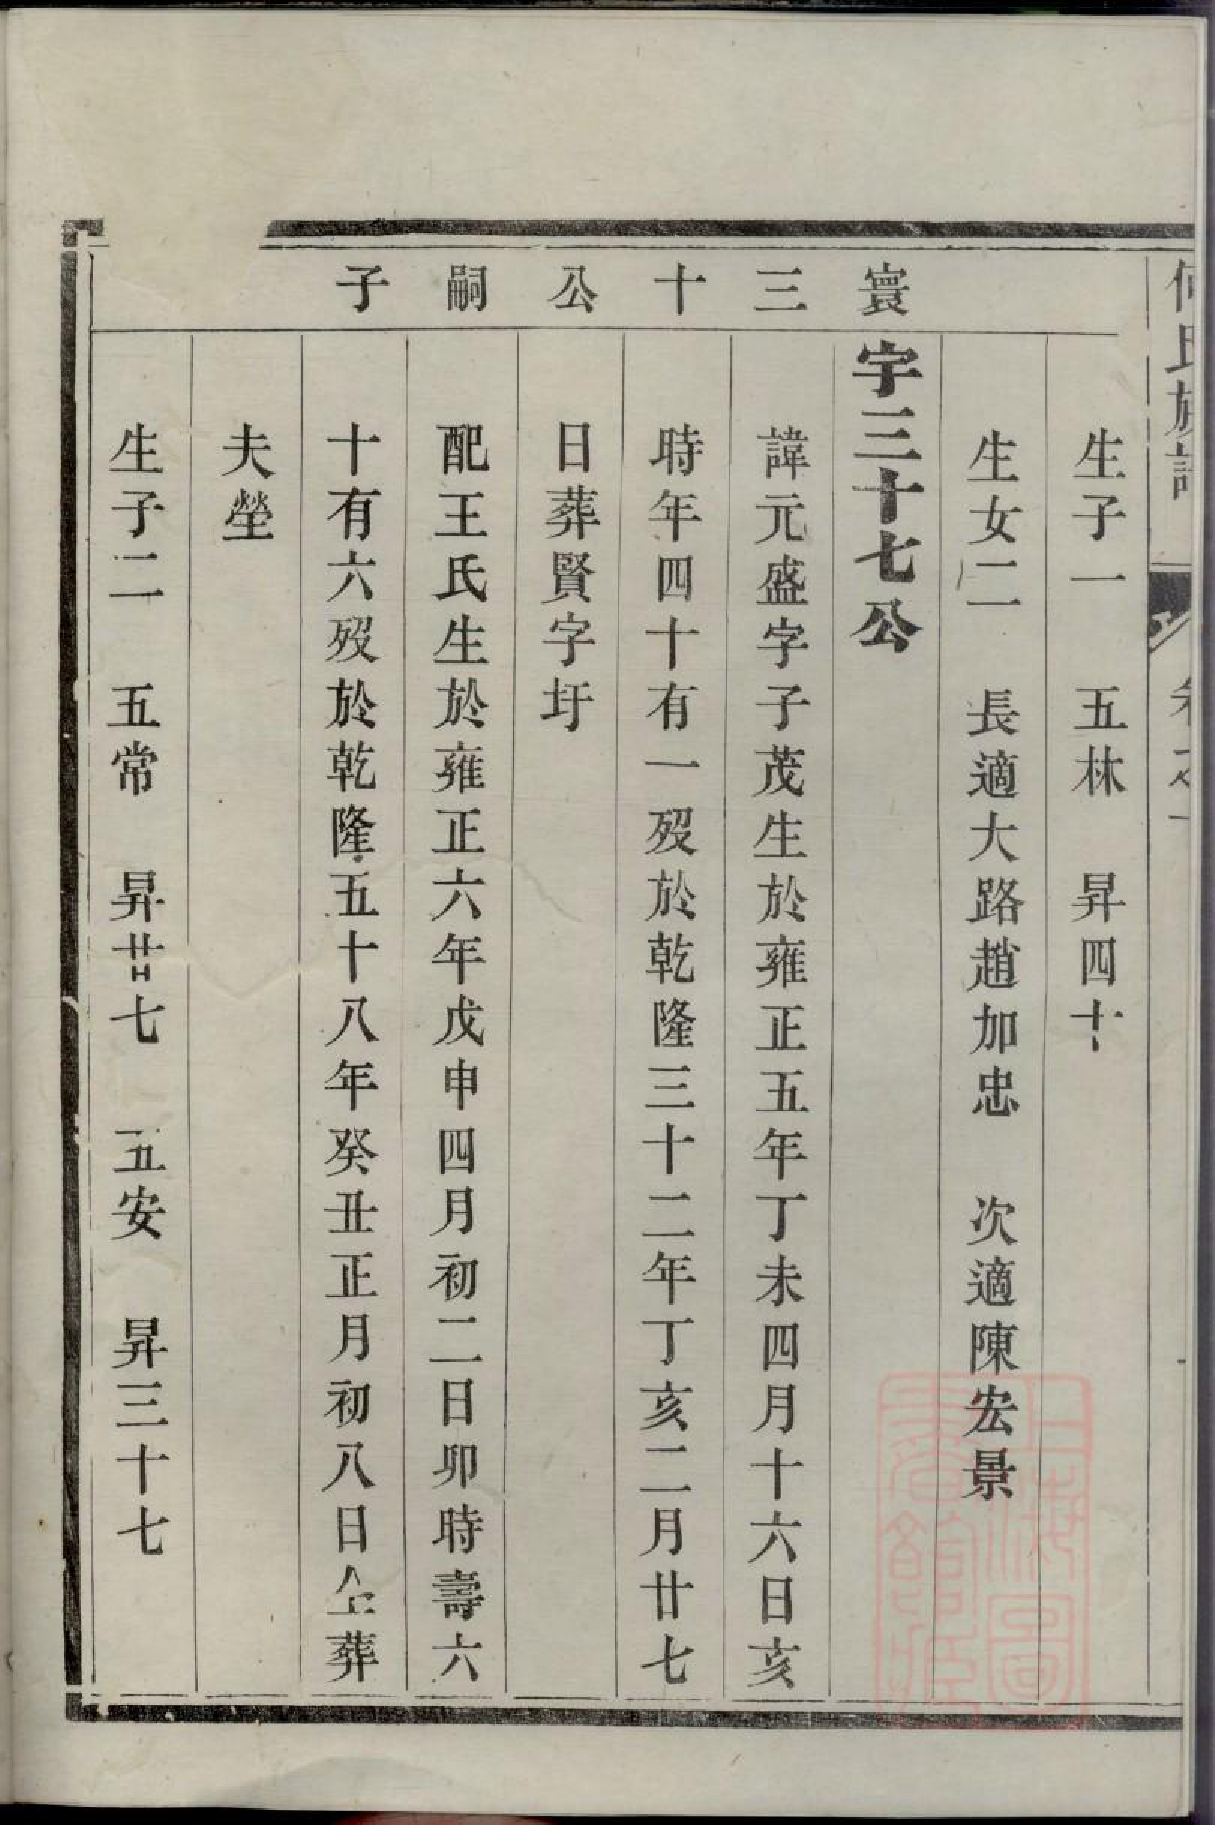 何氏族譜
卷之一
生子一　五林　昇四十
生女二　長適大路趙加忠　次適陳宏景
寰三十公嗣子
字三十七公
諱元盛字子茂生於雍正五年丁未四月十六日亥
時年四十有一歿於乾隆三十二年丁亥二月廿七
日葬賢字圩
配王氏生於雍正六年戊申四月初二日卯時壽六
十有六歿於乾隆五十八年癸丑正月初八日仝葬
夫塋
生子二　五常　昇廿七　五安　昇三十七